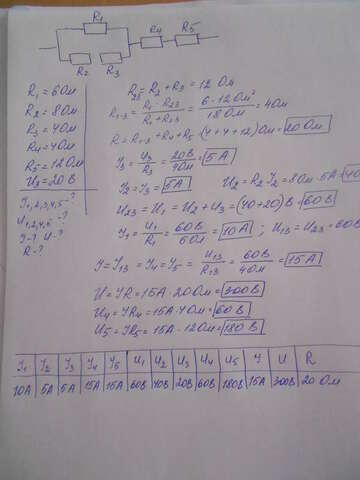 R₁
R₄ R₅
R₂ R₃
R₁ = 6 Ом
R₂ = 8 Ом
R₃ = 4 Ом
R₄ = 4 Ом
R₅ = 12 Ом
U₃ = 20 В
I₁,₂,₃,₄,₅ - ?
U₁,₂,₄,₅ - ?
I - ? U - ?
R - ?
R₂₃ = R₂ + R₃ = 12 Ом
R₁₋₃ = R₁ · R₂₃ / R₁ + R₂₃ = 6 · 12 Ом² / 18 Ом = 4 Ом
R = R₁₋₃ + R₄ + R₅ = (4 + 4 + 12) Ом = 20 Ом
I₃ = U₃ / R₃ = 20 В / 4 Ом = 5 А
I₂ = I₃ = 5 А U₂ = R₂ · I₂ = 8 Ом · 5 А = 40
U₂₃ = U₁ = U₂ + U₃ = (40 + 20) В = 60 В
I₁ = U₁ / R₁ = 60 В / 6 Ом = 10 А ; U₁₃ = U₂₃ = 60 В
I = I₁₃ = I₄ = I₅ = U₁₃ / R₁₃ = 60 В / 4 Ом = 15 А
U = IR = 15 А · 20 Ом = 300 В
U₄ = IR₄ = 15 А · 4 Ом = 60 В
U₅ = IR₅ = 15 А · 12 Ом = 180 В
I₁ I₂ I₃ I₄ I₅ U₁ U₂ U₃ U₄ U₅ I U R
10 А 5 А 5 А 15 А 15 А 60 В 40 В 20 В 60 В 180 В 15 А 300 В 20 Ом